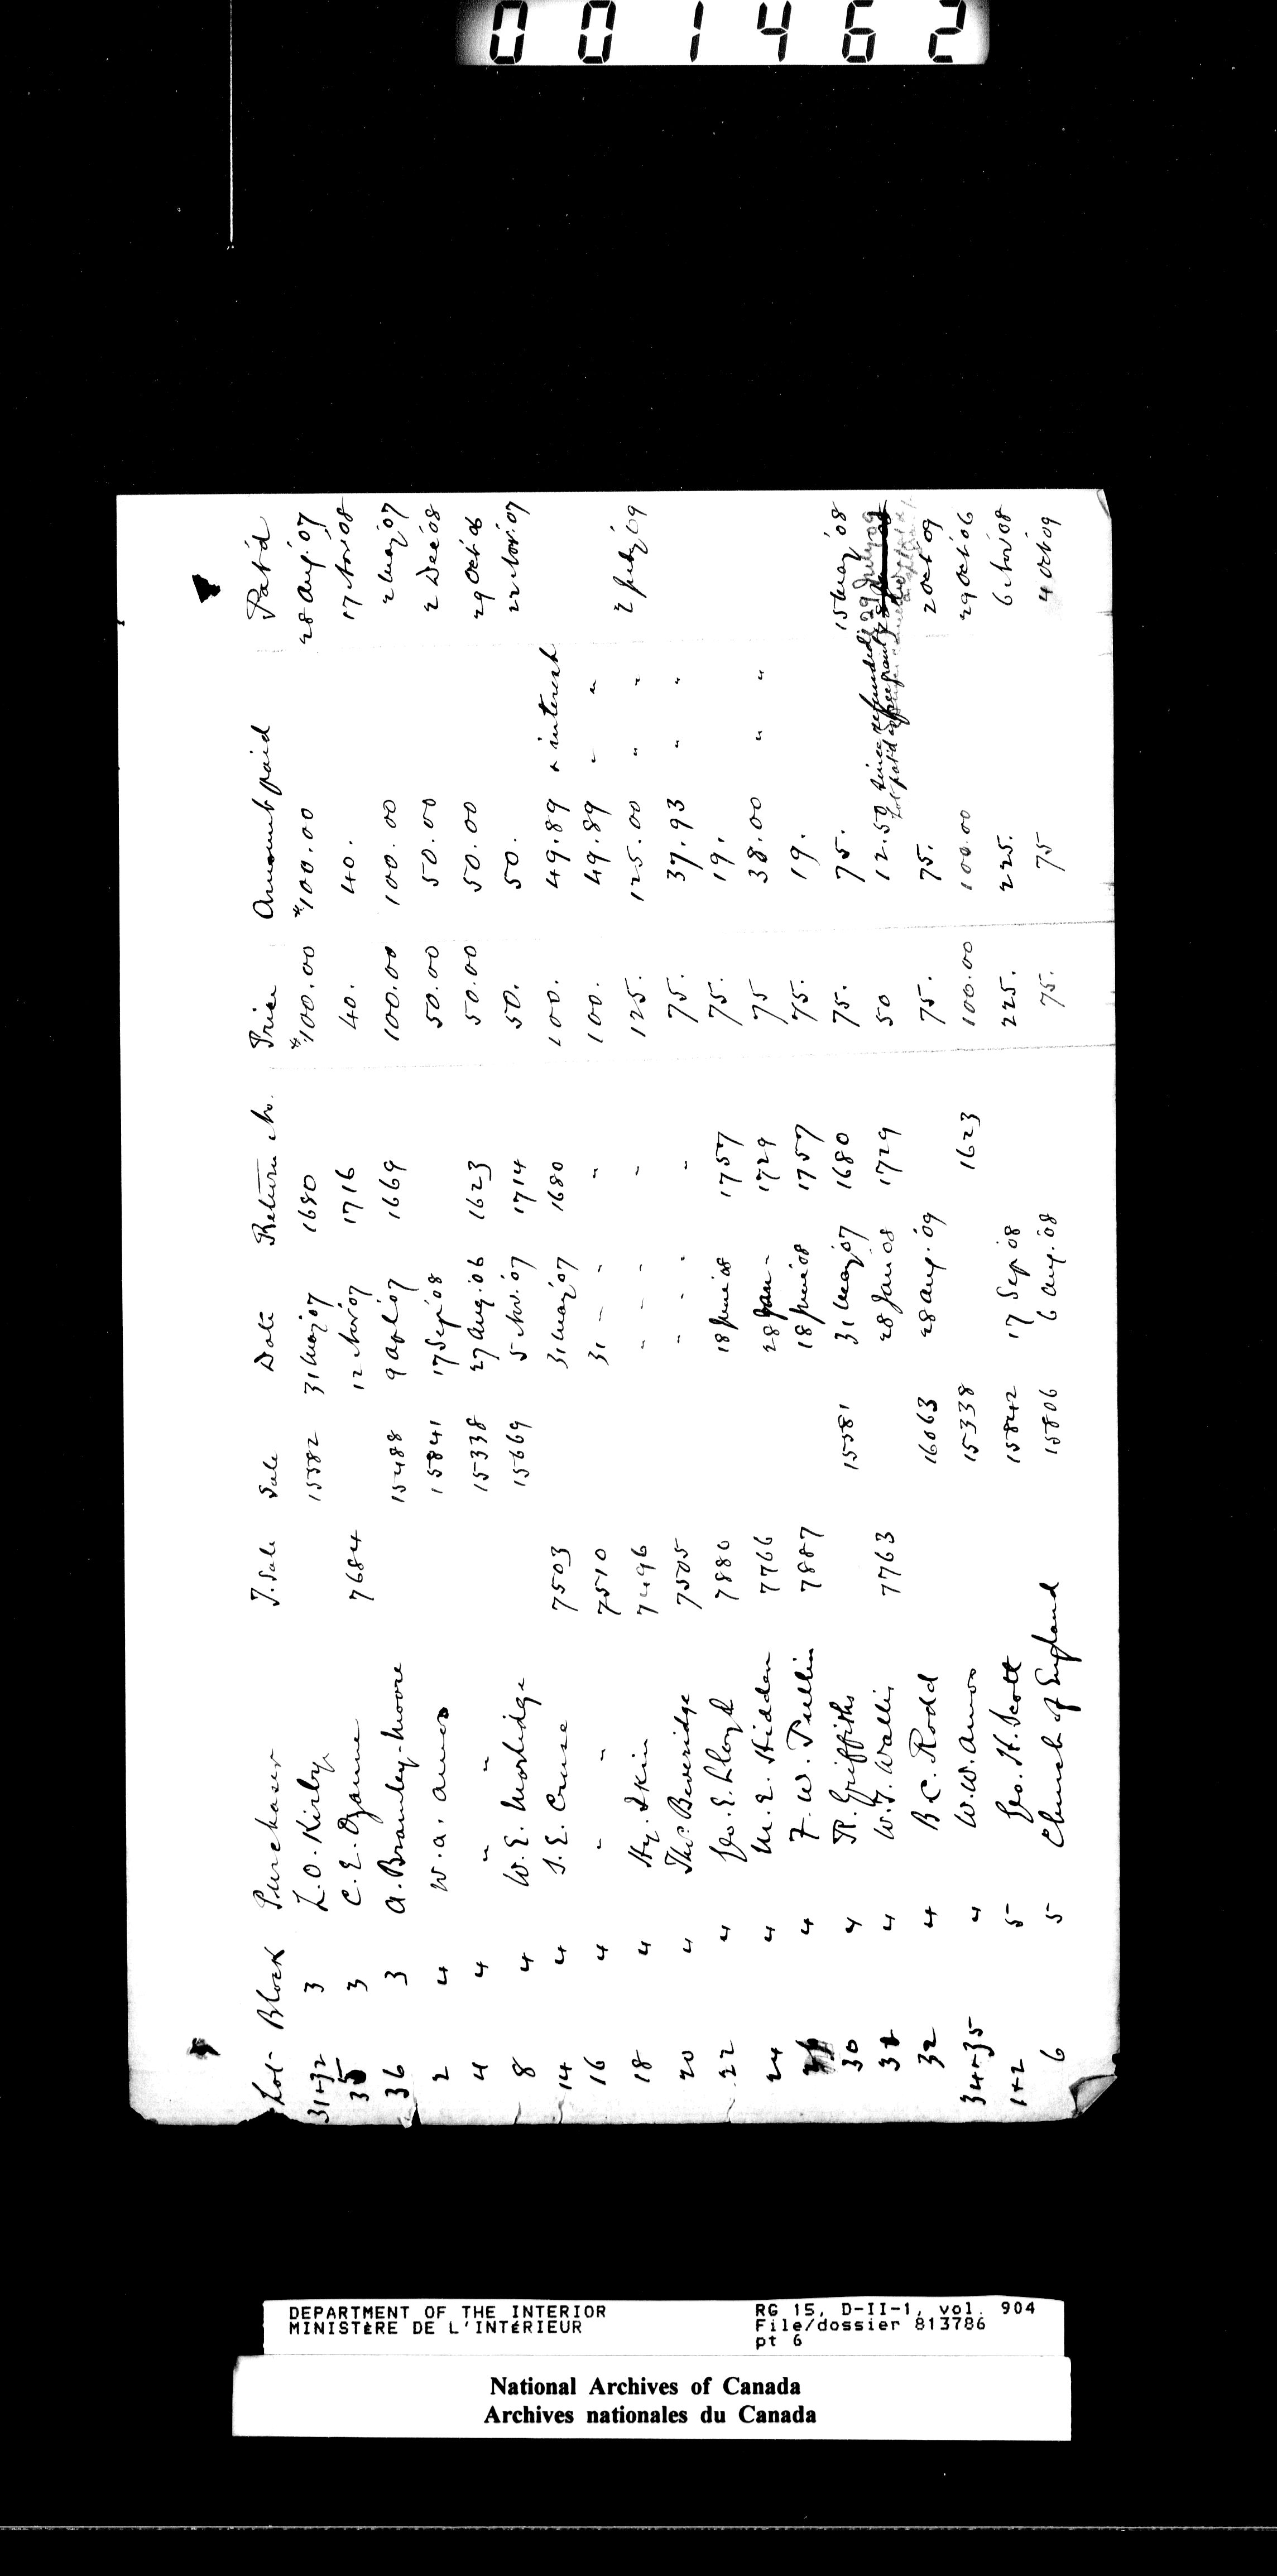 001462
Lot Block Purchaser T. Sale Sale Date Return No. Price Amount paid Pat'd
31+32 3 L.O. Kirby 15582 31 May '07 1680 $100.00 $100.00 28 Aug. '07
35 3 C.E. Ozanne 7684 12 Nov '07 1716 40. 40. 17 Nov '08
36 3 A. Bramley-Moore 15488 9 Apl '07 1669 100.00 100.00 2 May '07
2 4 W.A. Amos 15841 17 Sep '08 50.00 50.00 2 Dec '08
4 4 " " 15338 27 Aug. '06 1623 50.00 50.00 29 Oct '06
8 4 W.E. 15669 5 Nov. '07 1714 50. 50. 22 Nov. '07
14 4 S.E. Cruse 7503 31 May '07 1680 100. 49.89 + interest
16 4 " " 7510 31 - - " 100. 49.89 " "
18 4 Hy. Skin 7496 - - - " 125. 125.00 " " 2 July '09
20 4 Thos. Beveridge 7505 - - - " 75. 37.93 " "
22 4 Geo. E. Lloyd 7886 18 June '08 1757 75. 19.
24 4 M.E. Hidden 7766 28 Jan - 1729 75 38.00 " "
26 4 F.W. Pullin 7887 18 June '08 1757 75. 19.
30 4 R. Griffiths 15581 31 May '07 1680 75. 75. 15 May '08
32 4 W.J. Wallis 7763 28 Jan '08 1729 50 12.50 since refunded 29 July 09
32 4 B.C. Rodd 16063 28 Aug. '09 75. 75. 2 Oct 09
34+35 4 W.W. Amos 15338 1623 100.00 100.00 29 Oct '06
1+2 5 Geo. H. Scott 15842 17 Sep '08 225. 225. 6 Nov '08
6 5 Church of England 15806 6 Aug. '08 75. 75 4 Oct '09
DEPARTMENT OF THE INTERIOR
MINISTÈRE DE L'INTÉRIEUR
RG 15, D-II-1, vol. 904
File/dossier 813786
pt 6
National Archives of Canada
Archives nationales du Canada